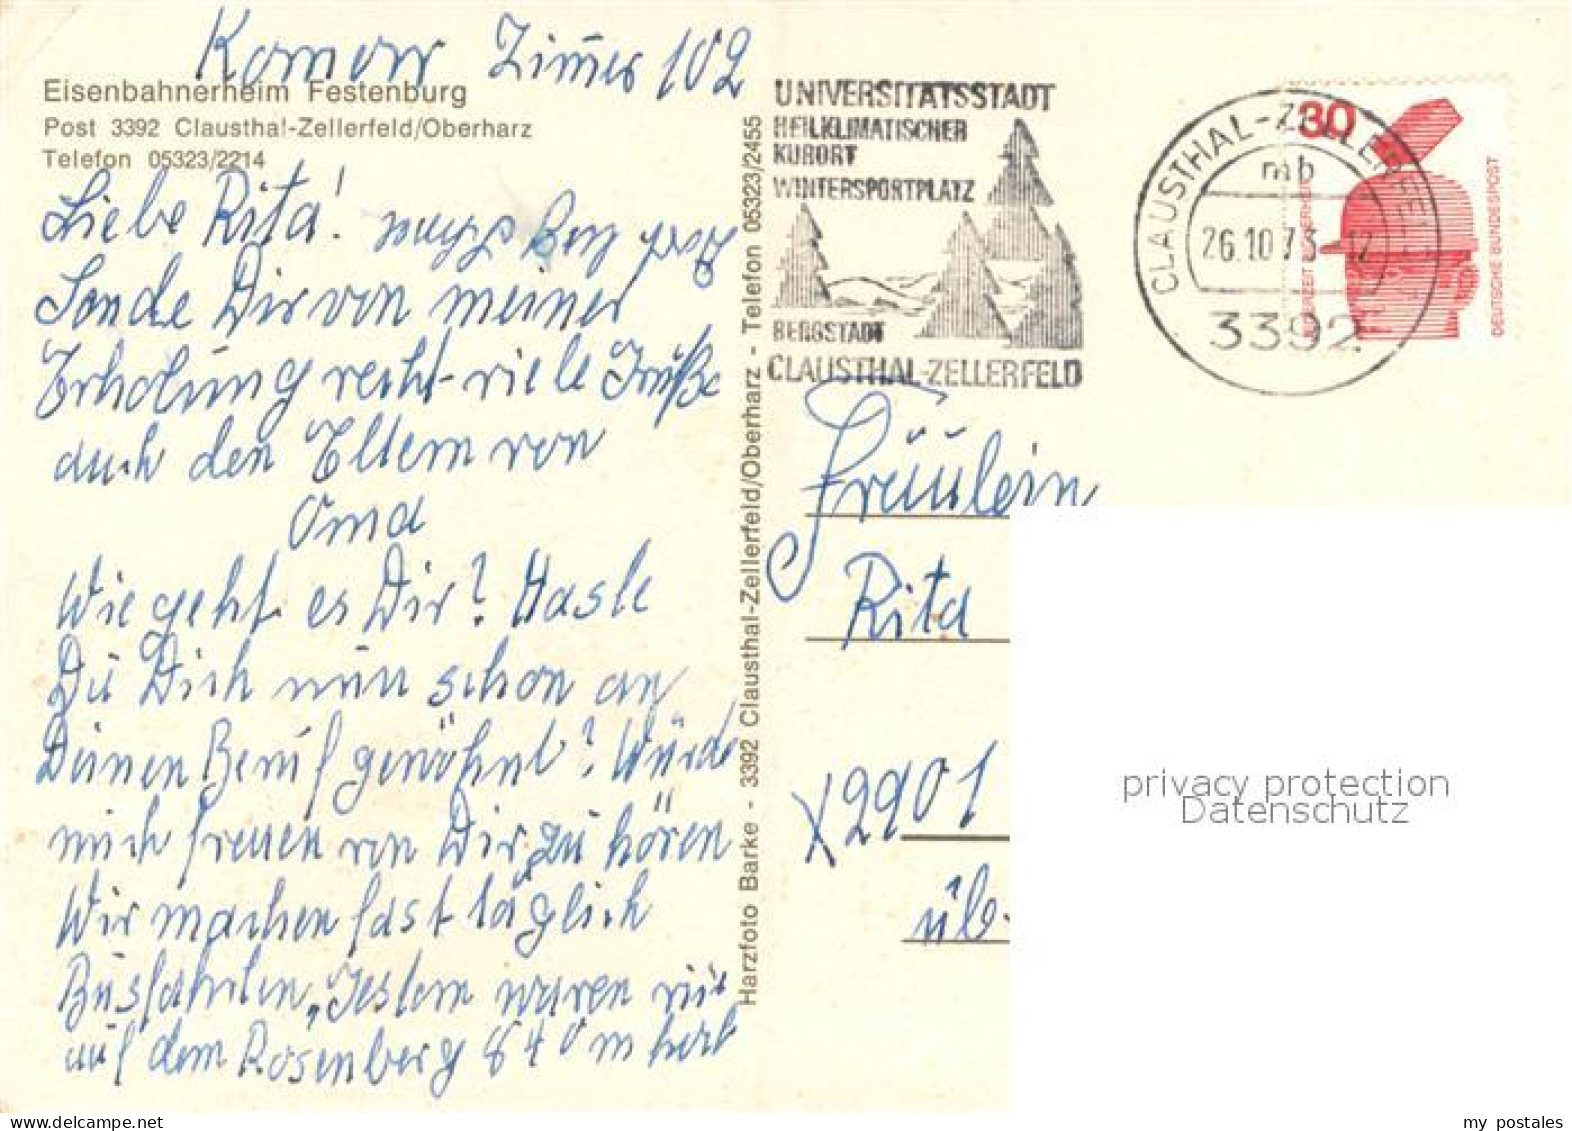 Komorr Zimmer 102
Eisenbahnerheim Festenburg
Post 3392 Clausthal-Zellerfeld/Oberharz
Telefon 05323/2214
Liebe Rita!
Sende Dir von meiner
Erholung recht viele Grüße
auch den Eltern von
Oma
Wie geht es Dir? Haste
Du Dich nun schon an
Deinen Beruf gewöhnt? Würde
mich freuen von Dir zu hören
Wir machen fast täglich
Busfahrten, Gestern waren wir
auf dem Rosenberg 840 m
Harzfoto Barke - 3392 Clausthal-Zellerfeld/Oberharz - Telefon 05323/2455
UNIVERSITÄTSSTADT
HEILKLIMATISCHER
KURORT
WINTERSPORTPLATZ
BERGSTADT
CLAUSTHAL-ZELLERFELD
CLAUSTHAL-ZELLERFELD
mb
26.10.73-12
3392
30
DEUTSCHE BUNDESPOST
Fräulein
Rita
X2901
üb.
privacy protection
Datenschutz
my postales